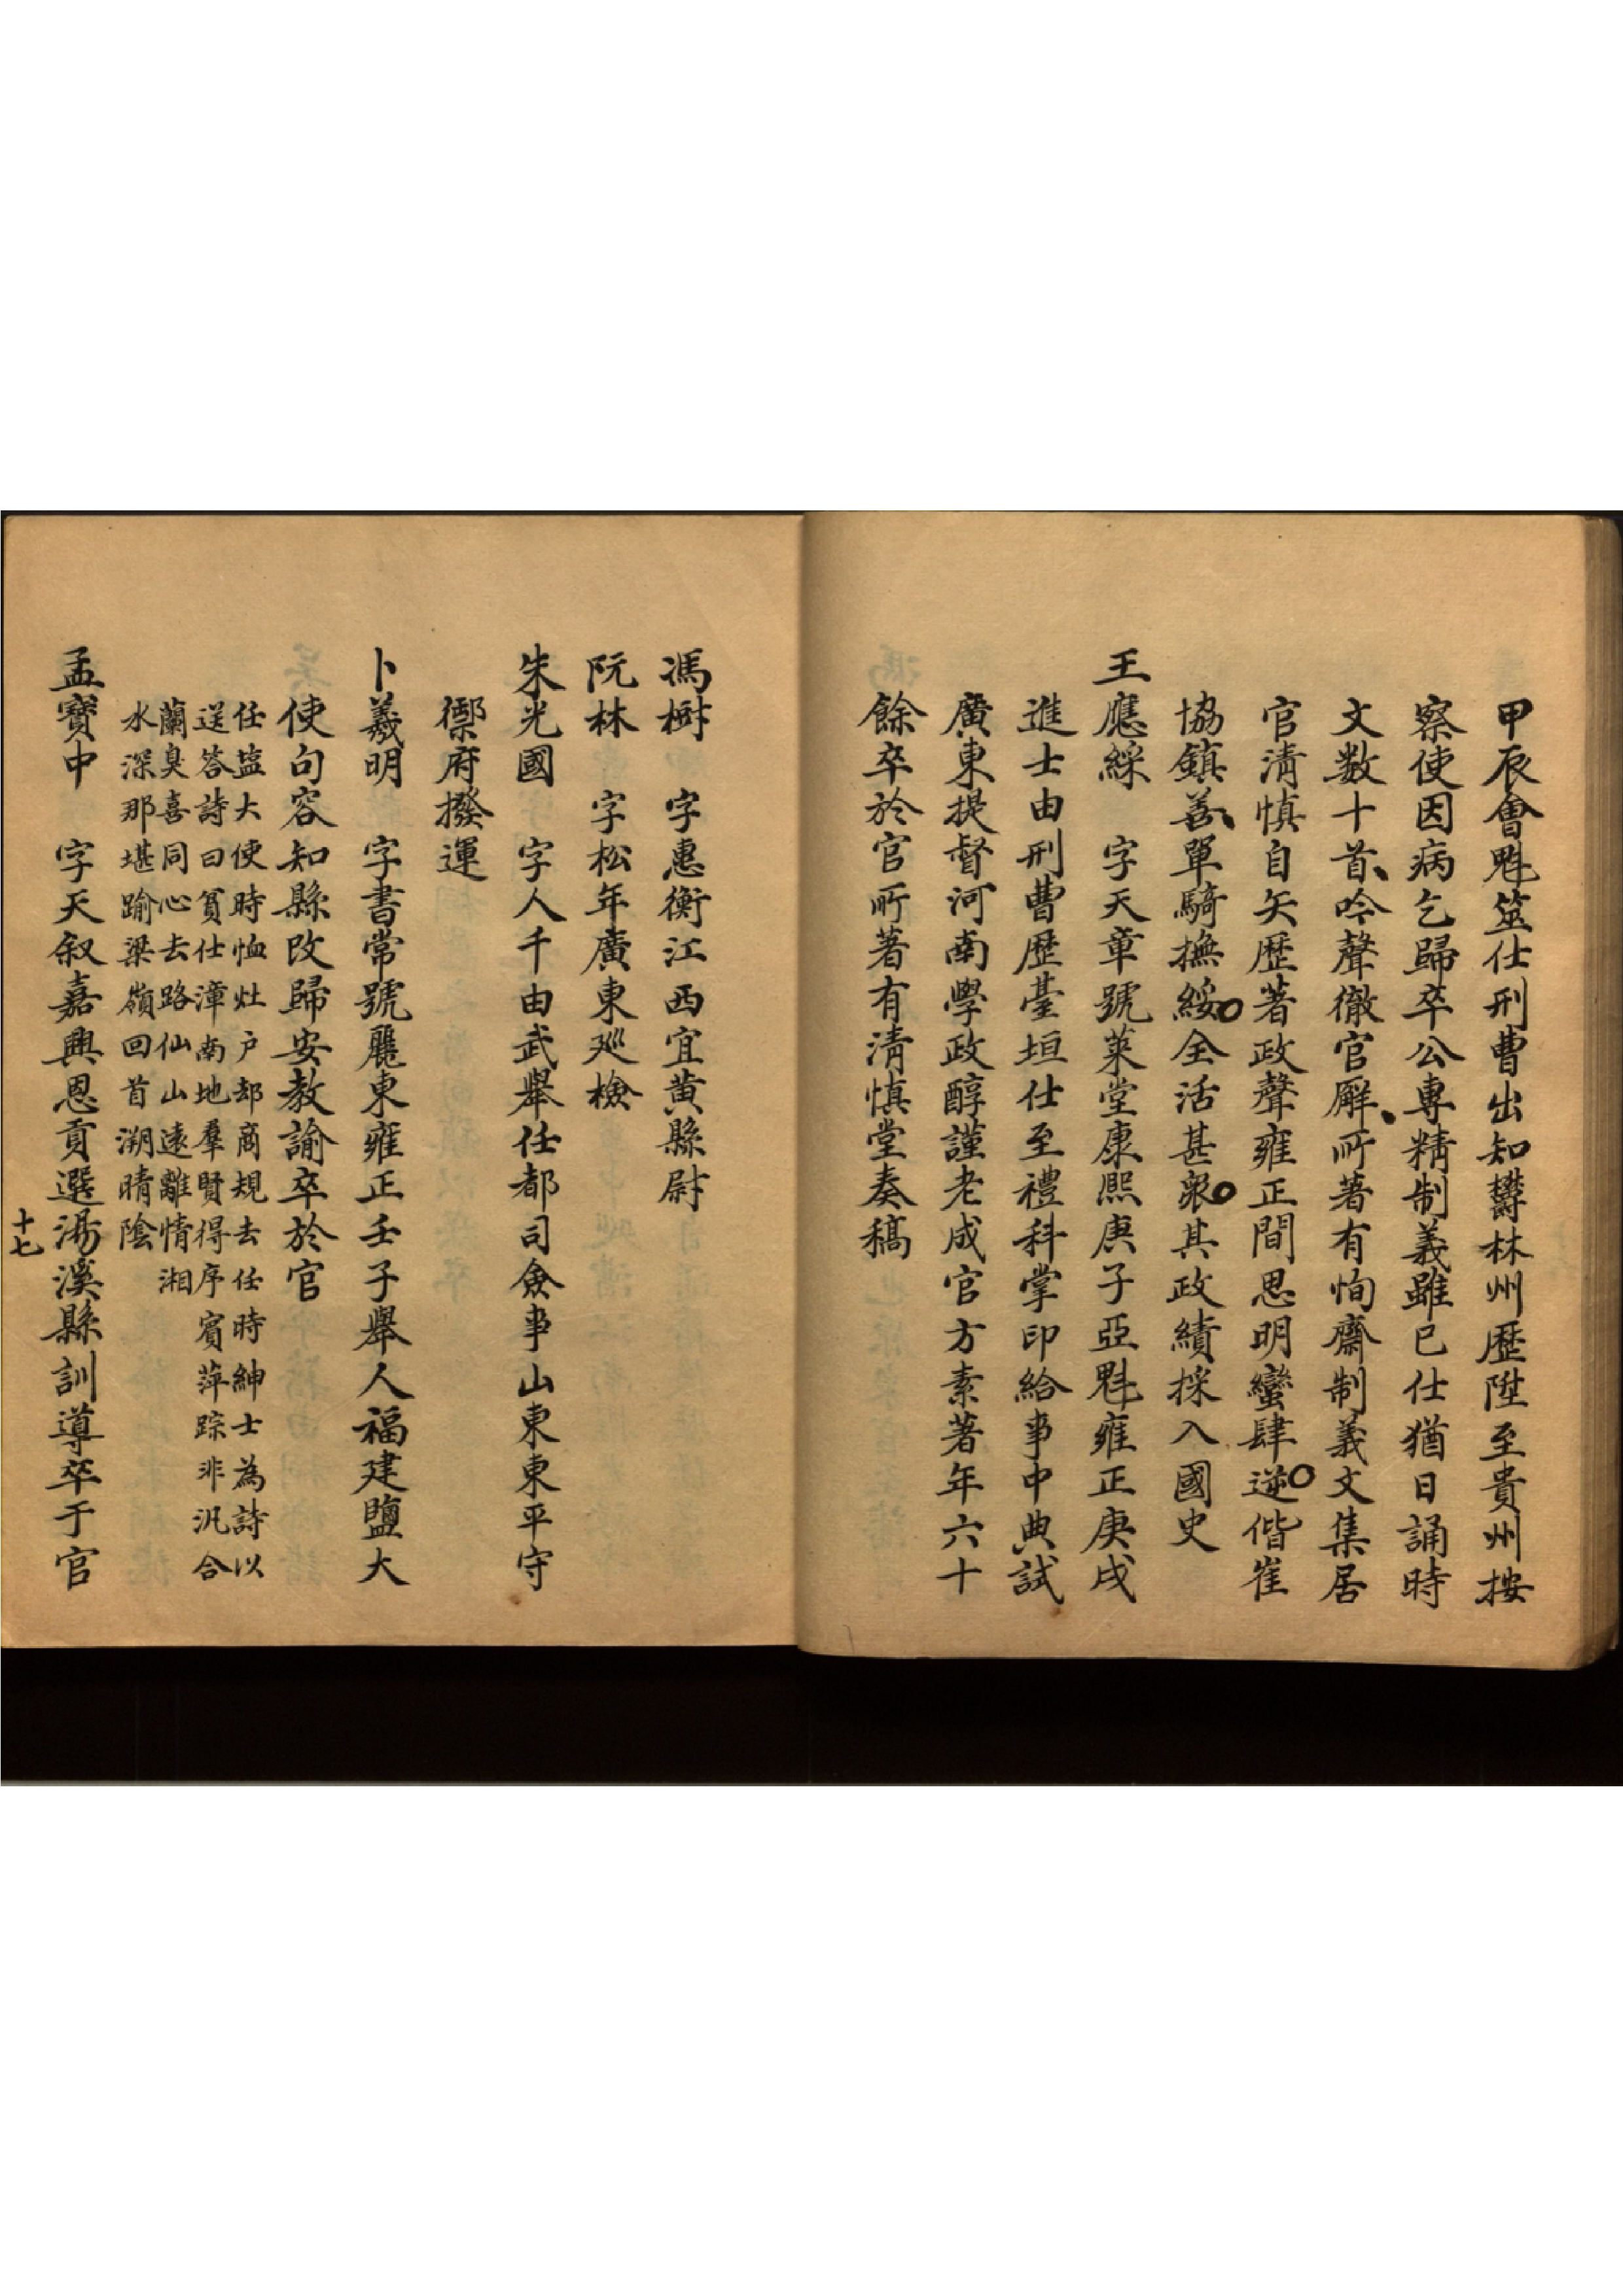 甲辰會魁筮仕刑曹出知欝林州歷陞至貴州按
察使因病乞歸卒公專精制義雖已仕猶日誦時
文数十首吟聲徹官廨所著有恂齋制義文集居
官清慎自矢歷著政聲雍正間思明蠻肆逆偕崔
協鎮善單騎撫綏全活甚衆其政績採入國史
王應綵　字天章號萊堂康熙庚子亞魁雍正庚戌
進士由刑曹歷臺垣仕至禮科掌印給事中典試
廣東提督河南學政醇謹老成官方素著年六十
餘卒於官所著有清慎堂奏稿
馮樹　字惠衡江西宜黄縣尉
阮林　字松年廣東廵檢
朱光國　字人千由武舉任都司僉事山東東平守
禦府撥運
卜羲明　字書常號麗東雍正壬子舉人福建鹽大
使句容知縣改歸安教諭卒於官
任盐大使時恤灶户却商規去任時紳士為詩以
送答詩曰貧仕漳南地羣賢得序賓萍踪非汎合
蘭臭喜同心去路仙山遠離情湘
水深那堪踰梁嶺回首溯晴陰
孟寶中　字天叙嘉興恩貢選湯溪縣訓導卒于官
十七